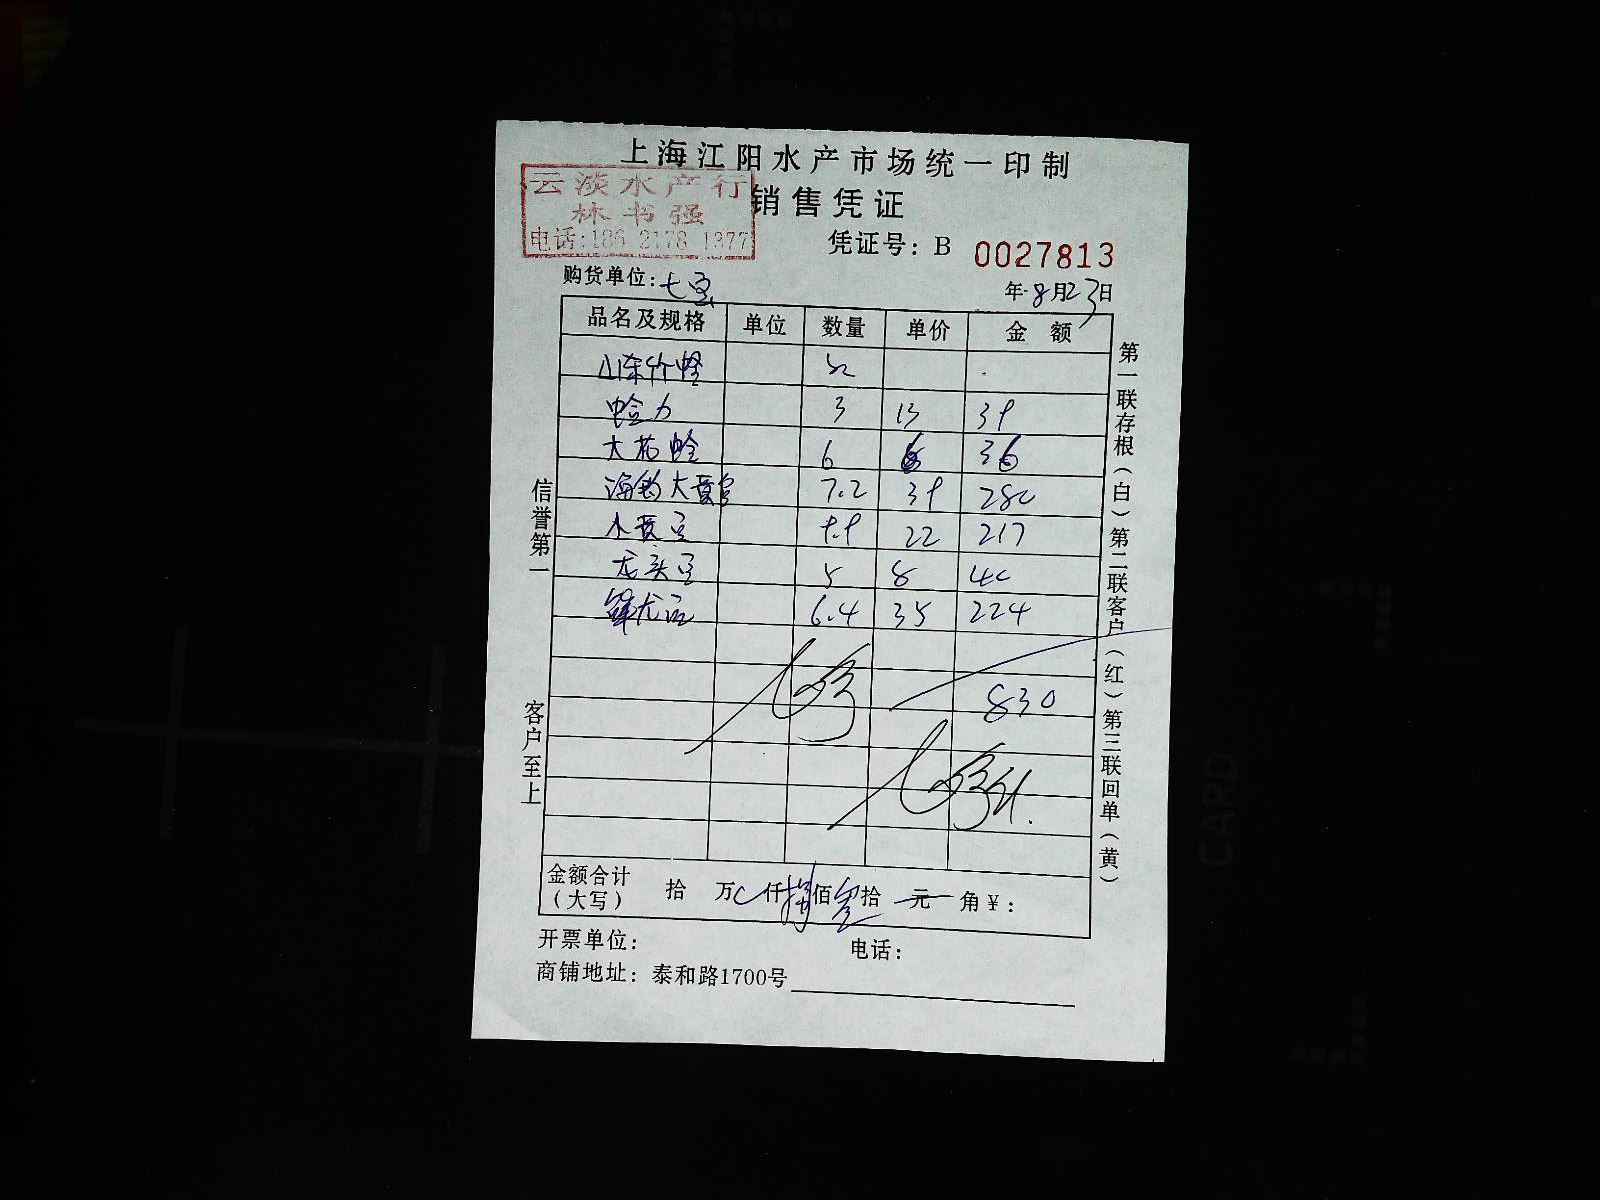 上海江阳水产市场统一印制
云淡水产行
林书强
电话:186 2178 1377
销售凭证
凭证号：B 0027813
购货单位：七宝
年 8月23日
品名及规格 单位 数量 单价 金额
山东竹蛏
蛤力 3 13 39
大花蛤 6 6 36
7.2 39 280
小黄 9.9 22 217
龙头 5 8 40
6.4 35 224
830
金额合计（大写） 拾 万 仟 捌佰 叁拾 元 角￥：
开票单位： 电话：
商铺地址：泰和路1700号
信誉第一
客户至上
第一联存根（白）第二联客户（红）第三联回单（黄）